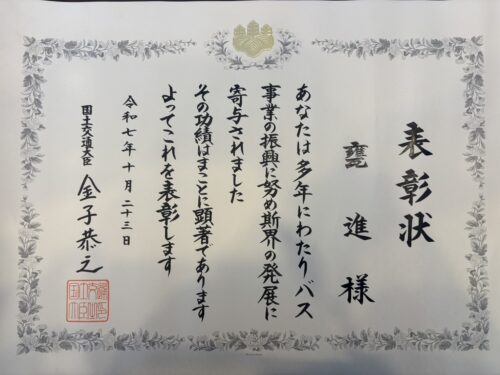 表彰状
甕進様
あなたは多年にわたりバス
事業の振興に努め斯界の発展に
寄与されました
その功績はまことに顕著であります
よってこれを表彰します
令和七年十月二十三日
国土交通大臣 金子恭之